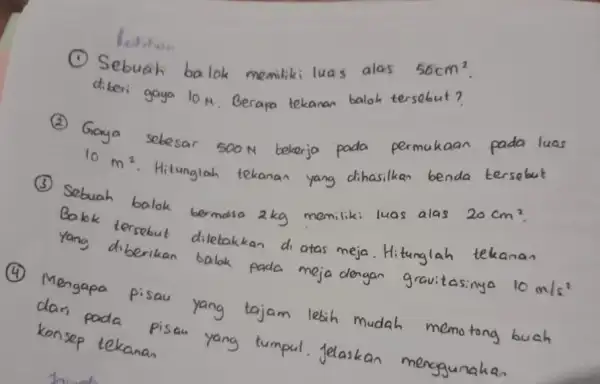 ① Sebuah balok memiliki luas alas 50cm².
diberi gaya 10 N. Berapa tekanan balok tersebut?
② Gaya sebesar 500 N bekerja pada permukaan pada luas
10 m². Hitunglah tekanan yang dihasilkan benda tersebut
③ Sebuah balok bermassa 2kg memiliki luas alas 20 cm².
Balok tersebut diletakkan di atas meja. Hitunglah tekanan
yang diberikan balok pada meja dengan gravitasinya 10 m/s²
④ Mengapa pisau yang tajam lebih mudah memotong buah
dari pada pisau yang tumpul. Jelaskan menggunakan
konsep tekanan